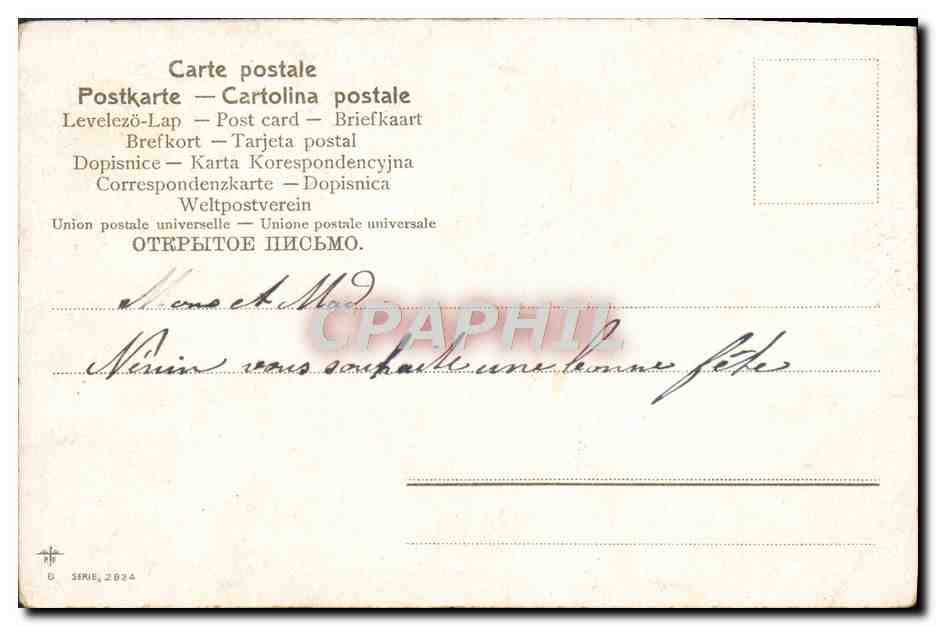 Carte postale
Postkarte — Cartolina postale
Levelezö-Lap — Post card — Briefkaart
Brefkort — Tarjeta postal
Dopisnice — Karta Korespondencyjna
Correspondenzkarte — Dopisnica
Weltpostverein
Union postale universelle — Unione postale universale
ОТКРЫТОЕ ПИСЬМО.
Mons et Mad
CPAPHIL
Nénin vous souhaite une bonne fête
B SERIE, 2824